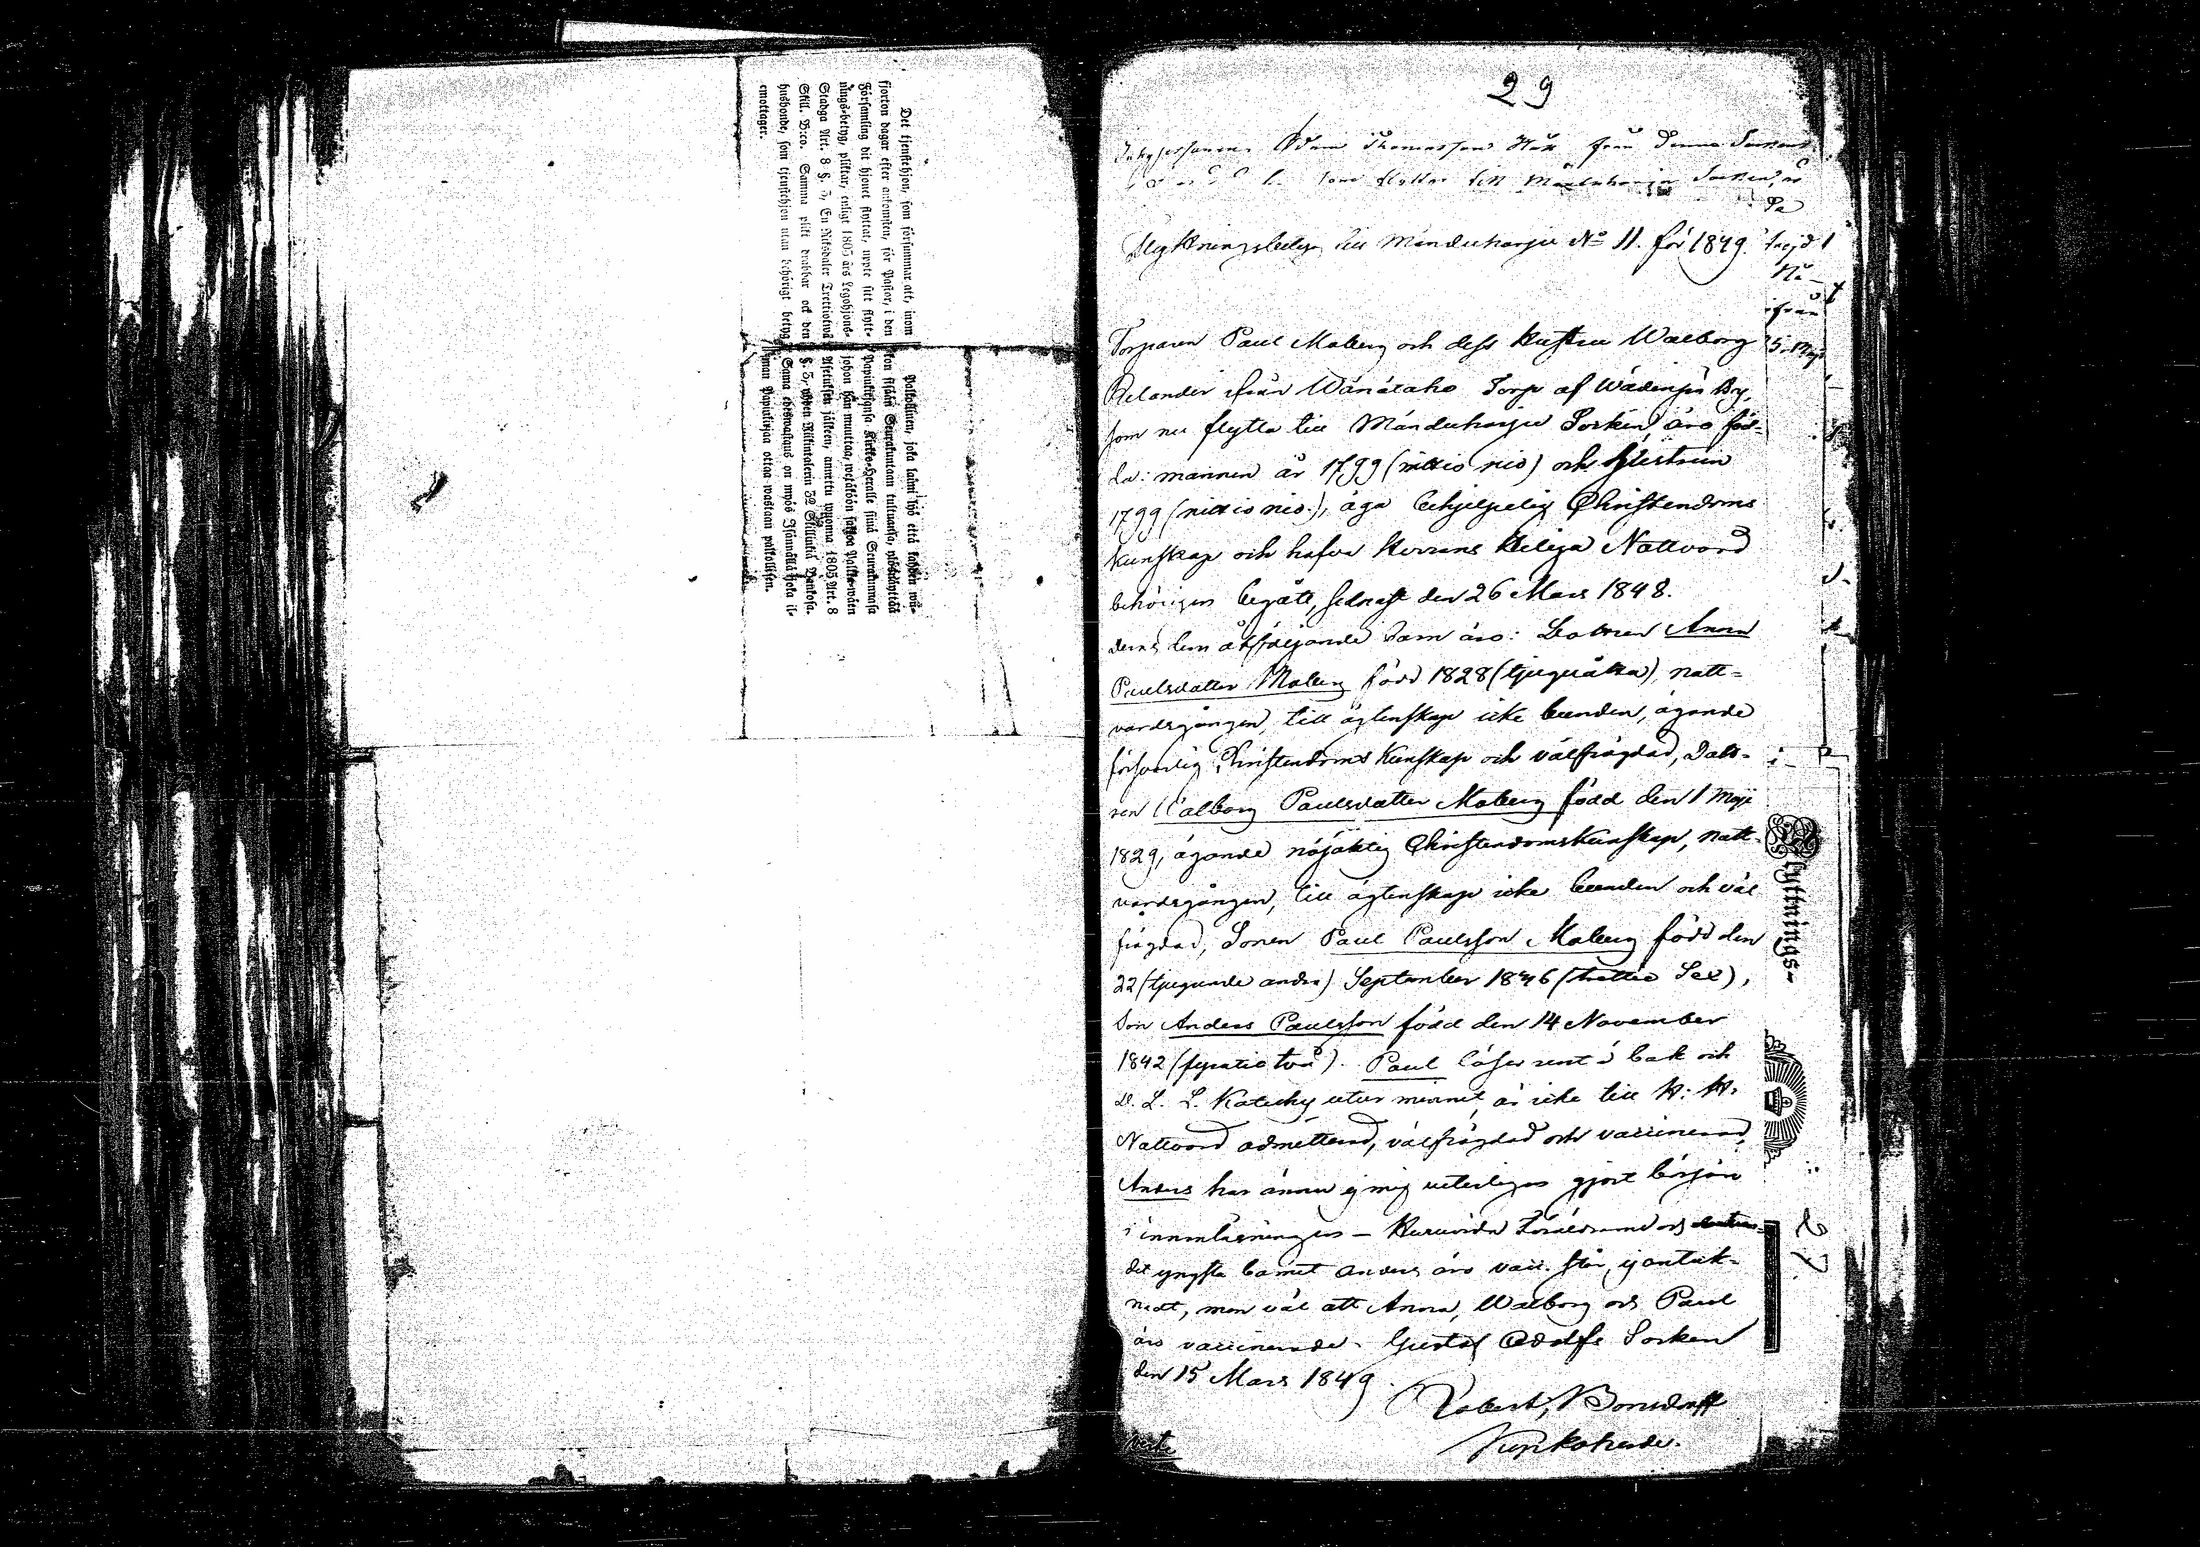 Det tjenstehjon, som försummar att, inom
fjorton dagar efter ankomsten, för Pastor, i den
Församling dit hjonet flyttat, uppte sitt flytt-
nings-betyg, pliktar, enligt 1805 års Legohjons-
Stadga Art. 8 §. 5, En Riksdaler Trettiotvå
Skill. B:co. Samma plikt drabbar ock den
husbonde, som tjenstehjon utan behörigt betyg
emottager.
Palkollinen, joka laimi lyö että kahden wii-
kon sisään Seurakuntaan tultuansa, ylösnäyttää
Papinkirjansa Kirkko-Herralle siinä Seurakunnassa
johon hän muuttaa, wetäköön sakkoa Palkkowäen
Asetuksen jälkeen, annettu wuonna 1805 Art. 8
§. 5, yhden Riksintalerin 32 Killinkiä Bankosa.
Sama edeswastaus on myös Isännällä joka il-
man Papinkirjaa ottaa wastaan palkollisen.
29
Adam Thomasson från denna Socken
som flyttar till Mäntyharju Socken, är
Flyttningsbetyg till Mänduharju No 11. för 1849.
Torparen Paul Moberg och dess hustru Walborg
Relander ifrån Wänätaho Torp af Wädenjä By,
som nu flytta till Mänduharju Socken, äro föd-
da: mannen år 1799 (nittio nio) och hustrun
1799 (nittio nio), äga behjelpelig Christendoms
kunskap och hafva Herrans Heliga Nattvard
behörigen begått, sednast den 26 Mars 1848.
äro: Dottren Anna
Paulsdotter Moberg född 1828 (tjuguåtta), natt-
vardsgången, till ägtenskap icke bunden, ägande
försvarlig Christendoms Kunskap och välfrägdad, Dott-
ren Walborg Paulsdotter Moberg född den 1 Maji
1829, ägande nöjaktig Christendomskunskap, natt-
vardsgången, till ägtenskap icke bunden och väl
frägdad, Sonen Paul Paulsson Moberg född den
22 (tjugunde andra) September 1836 (trettio Sex),
Son Anders Paulsson född den 14 November
1842 (fyratio två). Paul läser rent i bok och
D. L. L. Kateches utur minnet, är icke till H. H.
Nattvard admitterad, välfrägdad och vaccinerad,
Anders har ännu ej mig veterligen gjort början
i innanläsningen — Huruvida Föräldrarne och
det yngsta barnet Anders äro vacc. står ej anteck-
nadt, men väl att Anna, Walborg och Paul
äro vaccinerade. Gustaf Adolfs Socken
den 15 Mars 1849.
Robert Bonsdorff
Kyrkoherde.
verte
Flyttnings-